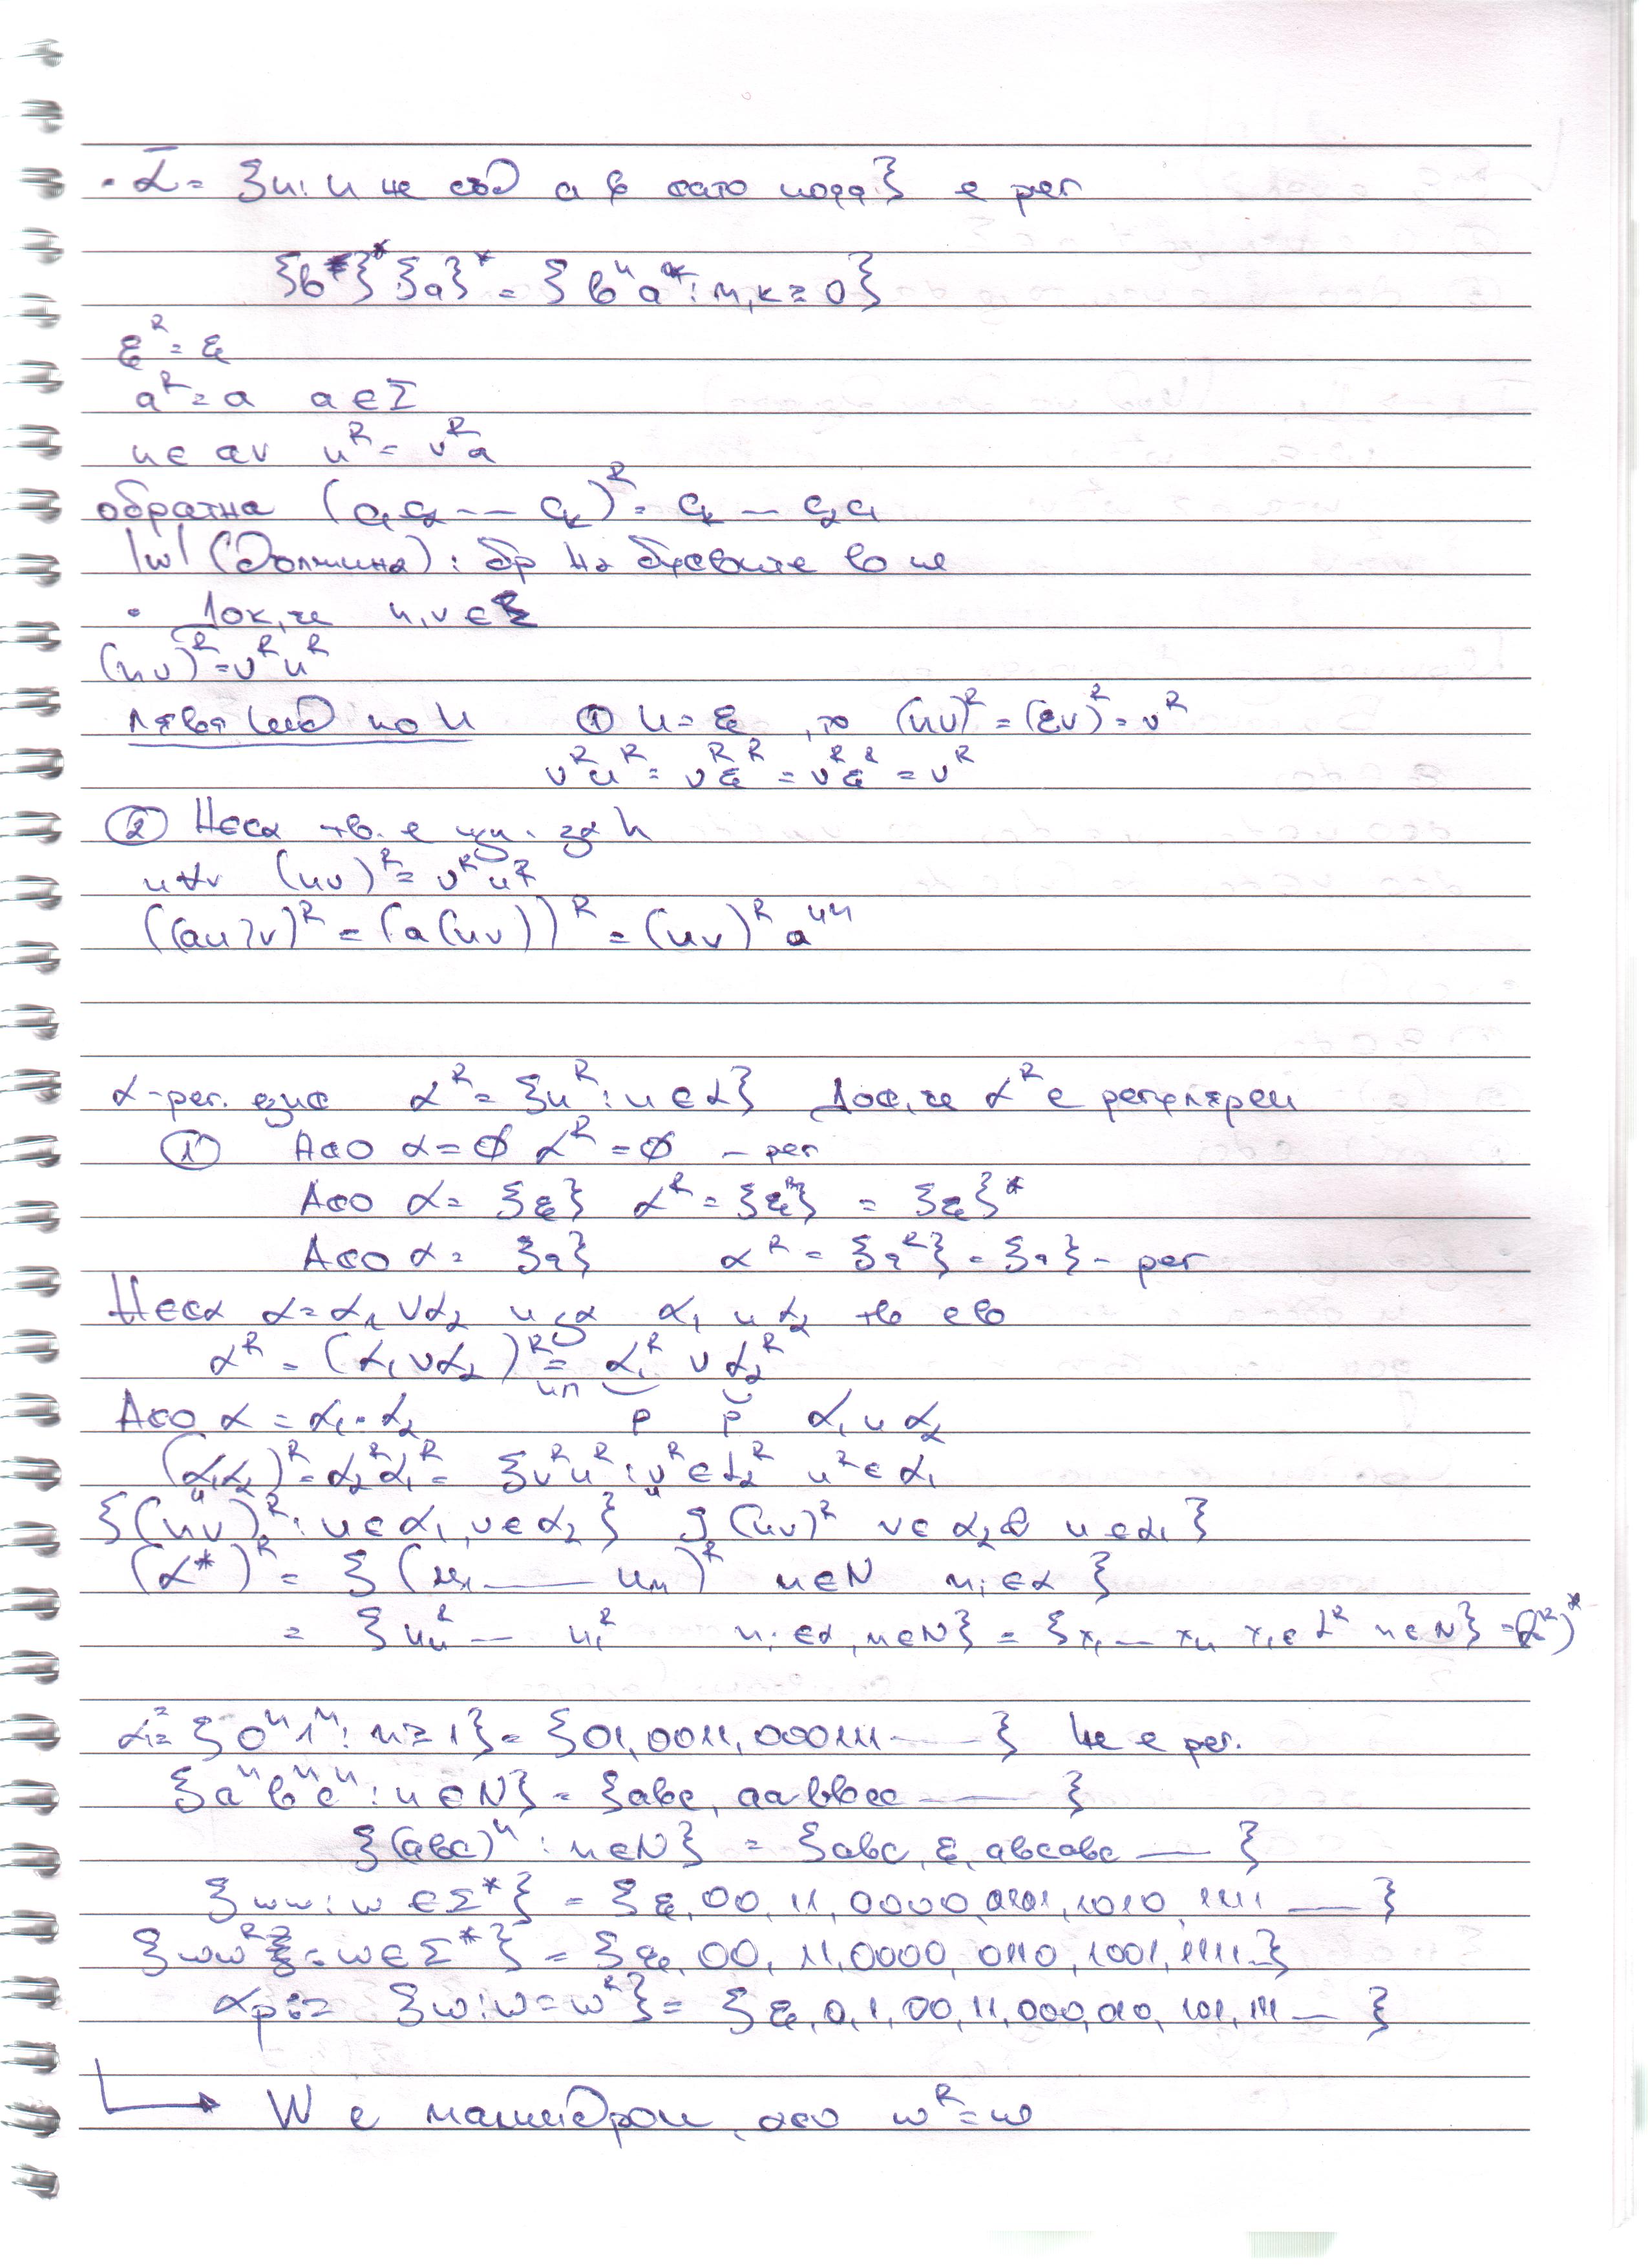 · L̄ = {u: u не съд ab като дума} е рег
{b}* {a}* = {bⁿaᵏ: n,k ≥ 0}
ε^R = ε
a^R = a a ∈ Σ
u = av u^R = v^R a
обратна (a₁a₂ --- aₖ)^R = aₖ — a₂a₁
|w| (Должина): бр на буквите во
· Док, че u,v ∈ Σ
(uv)^R = v^R u^R
инд по u ① u = ε , то (uv)^R = (εv)^R = v^R
v^R u^R = v^R ε^R = v^R ε = v^R
② Нека тв. е изп. за u
и ∀v (uv)^R = v^R u^R
((au)v)^R = (a(uv))^R = (uv)^R a
L-рег. език L^R = {u^R : u ∈ L} Док, че L^R е регулярен
① Ако L = ∅ L^R = ∅ – рег
Ако L = {ε} L^R = {ε^R} = {ε}*
Ако L = {a} L^R = {a^R} = {a} – рег
Нека L = L₁ ∪ L₂ и за L₁ и L₂ тв е
L^R = (L₁ ∪ L₂)^R = L₁^R ∪ L₂^R
ип
Ако L = L₁·L₂ р р L₁ и L₂
(L₁L₂)^R = L₂^R L₁^R = {v^R u^R : v^R ∈ L₂^R u^R ∈ L₁
{(uv)^R : u ∈ L₁, v ∈ L₂} {(uv)^R v ∈ L₂ u ∈ L₁}
(L*)^R = {(u₁ —— uₙ)^R n ∈ N uᵢ ∈ L}
= {uₙ^R — u₁^R uᵢ ∈ L, n ∈ N} = {x₁ — xₙ xᵢ ∈ L^R n ∈ N} = (L^R)*
L = {0ⁿ1ⁿ : n ≥ 1} = {01, 0011, 000111 ——} Не е рег.
{aⁿbⁿcⁿ : n ∈ N} = {abc, aabbcc —— }
{(abc)ⁿ : n ∈ N} = {abc, ε, abcabc —— }
{ww : w ∈ Σ*} = {ε, 00, 11, 0000, 0101, 1010, 1111 —— }
{ww^R : w ∈ Σ*} = {ε, 00, 11, 0000, 0110, 1001, 1111 ..}
Lp := {w : w = w^R} = {ε, 0, 1, 00, 11, 000, 010, 101, 111 — }
→ W е палиндром, ако w^R = w